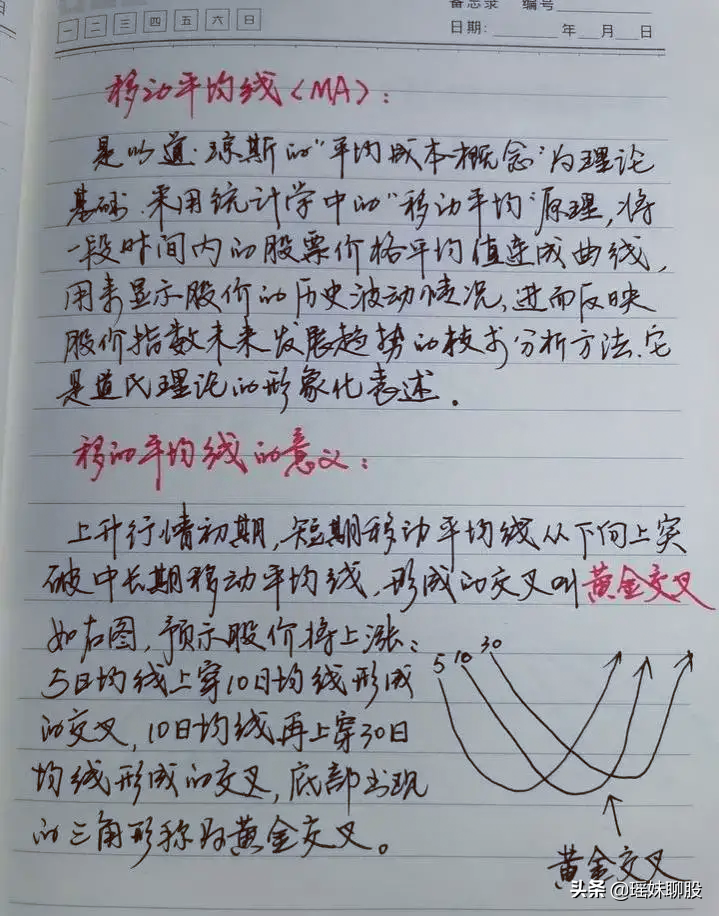 备忘录 编号
一 二 三 四 五 六 日
日期: 年 月 日
移动平均线(MA):
是以道·琼斯的"平均成本概念"为理论
基础,采用统计学中的"移动平均"原理,将
一段时间内的股票价格平均值连成曲线,
用来显示股价的历史波动情况,进而反映
股价指数未来发展趋势的技术分析方法.它
是道氏理论的形象化表述。
移动平均线的意义:
上升行情初期,短期移动平均线从下向上突
破中长期移动平均线,形成的交叉叫黄金交叉
如右图,预示股价将上涨:
5 10 30
5日均线上穿10日均线形成
的交叉,10日均线再上穿30日
均线形成的交叉,底部出现
的三角形称为黄金交叉。
黄金交叉
头条 @瑶妹聊股